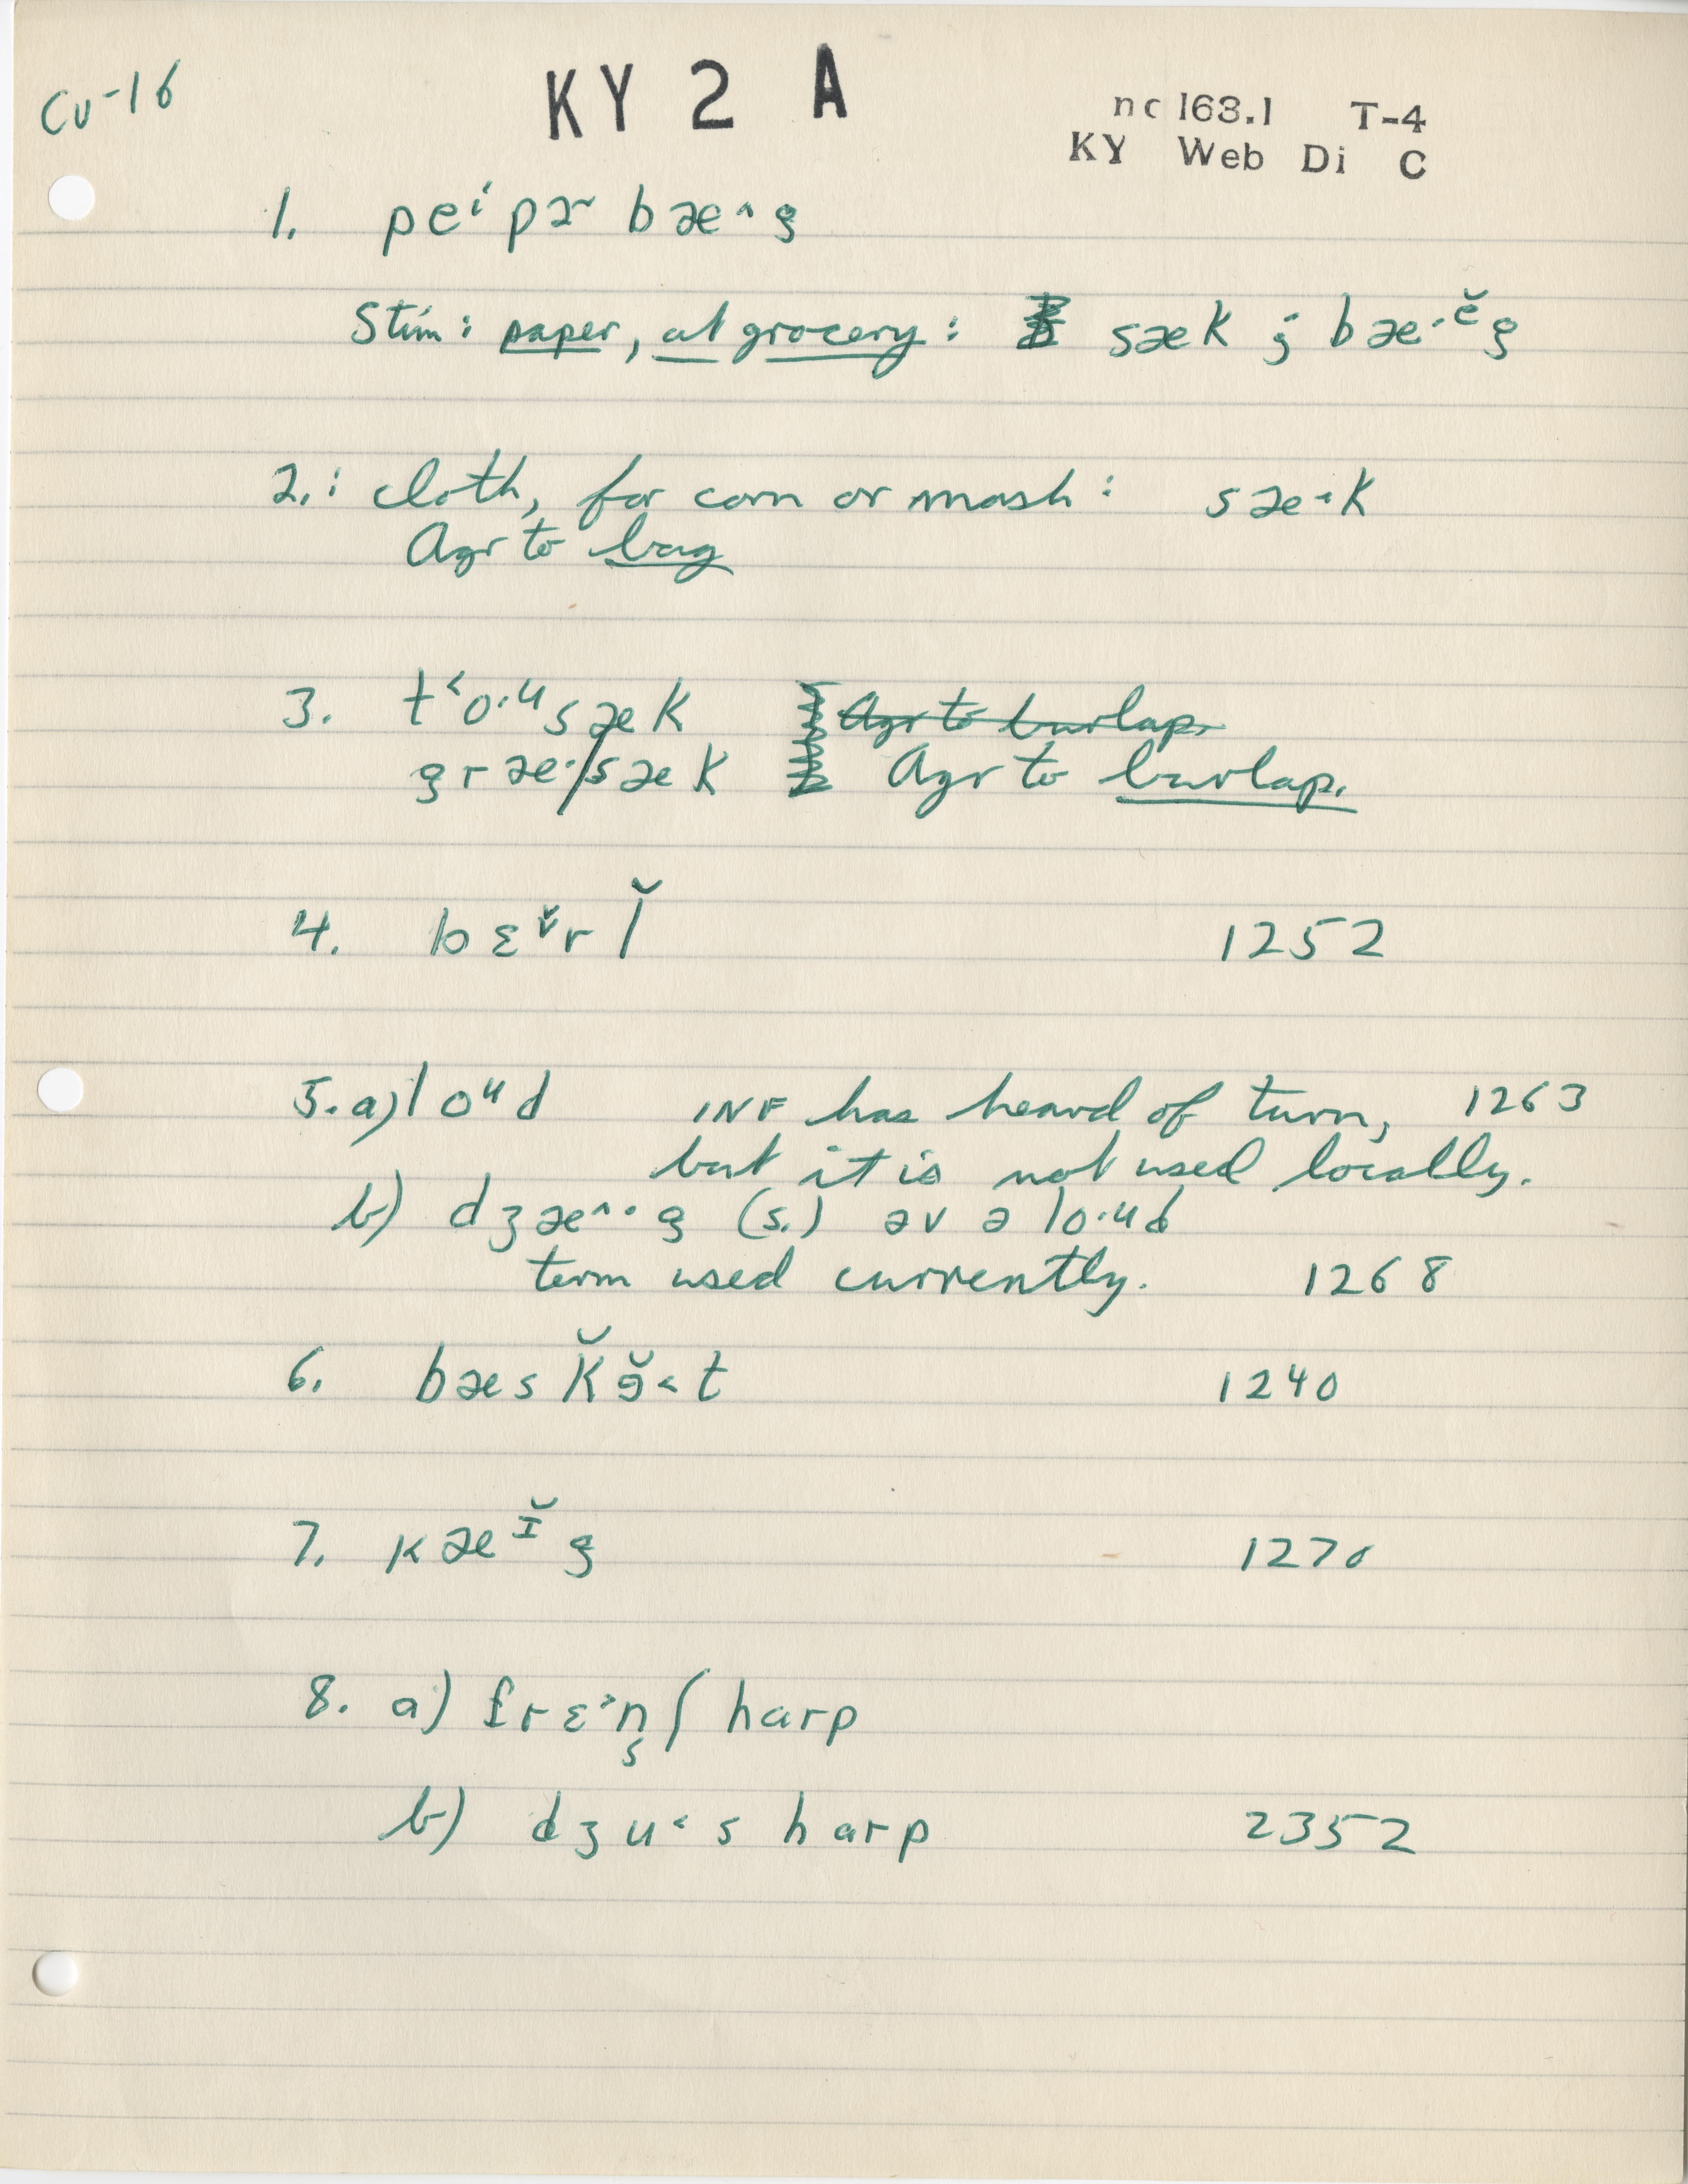 Cv-16
KY 2 A
nc 163.1 T-4
KY Web Di C
1. peⁱpɚ bæ^g
Stim: paper, at grocery: sæk ; bæ·ᵋ̆g
2.: cloth, for corn or mash: sæ·k
Agr to bag
3. t˂o·ᵘsæk Agr to burlap.
græ·/sæk Agr to burlap.
4. bɛ˅̆rl̆
5. a) loᵘd INF has heard of turn, 1263
but it is not used locally.
b) dʒæ^·g (s.) əv ə lo·ᵘd
term used currently. 1268
6. bæsk̆ə̆˂t 1240
7. kæᴵ̆g 1270
8. a) frɛ˃n̩ʃ harp
b) dʒu˂s harp 2352
1252